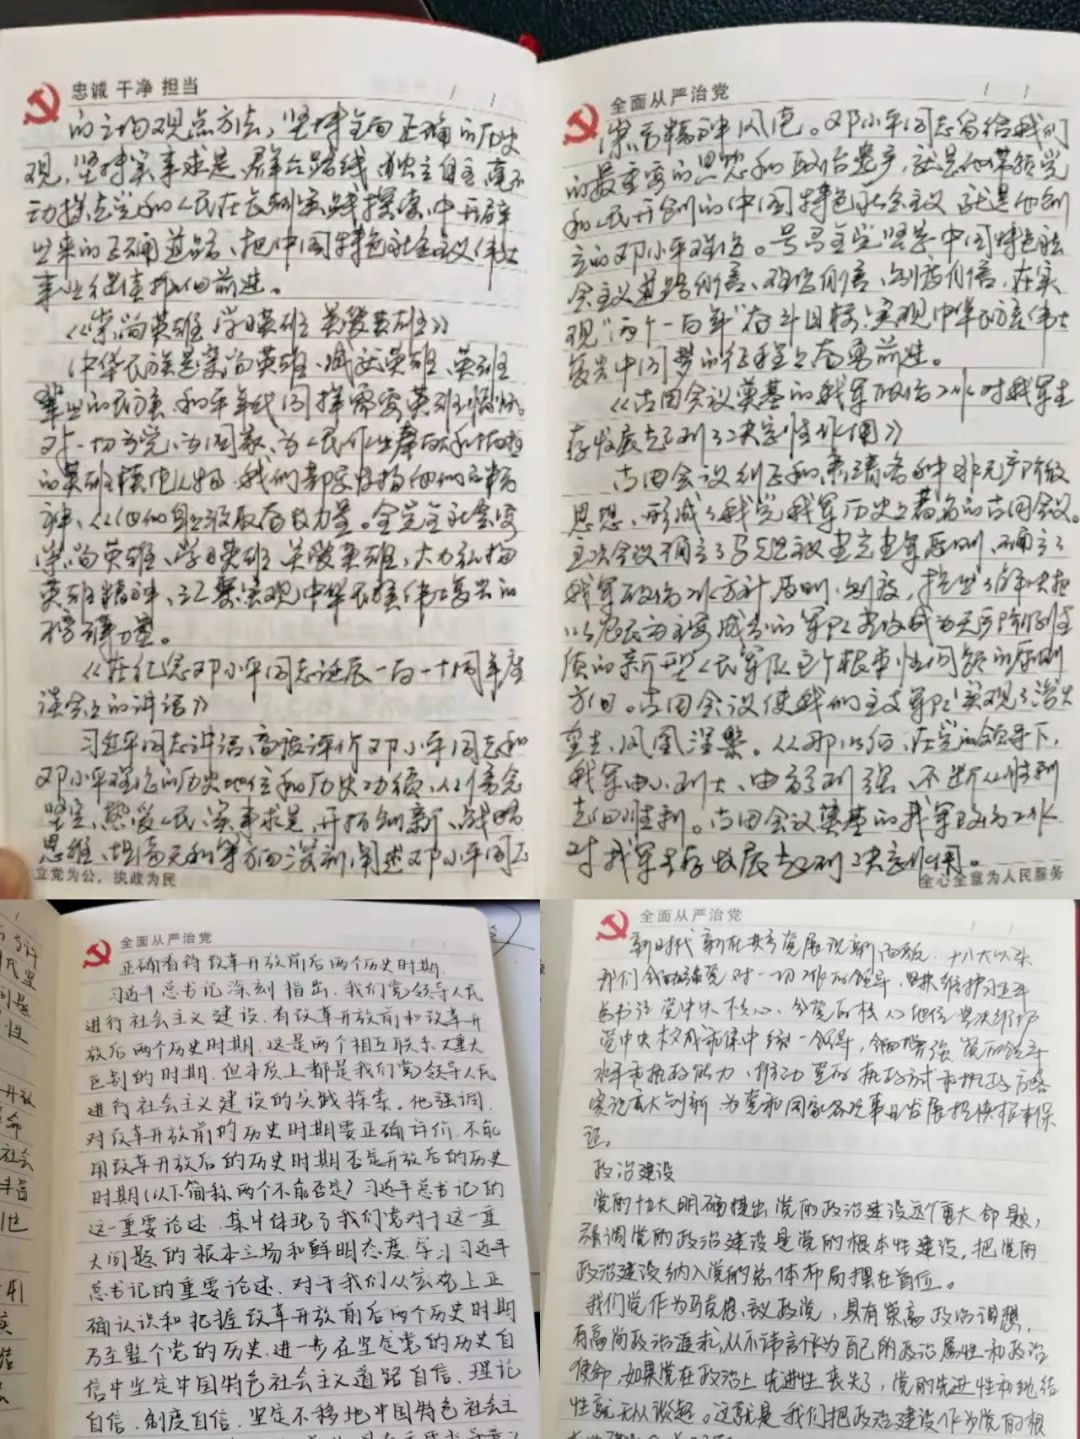 忠诚 干净 担当
的立场观点方法，坚持全面正确的历史
观，坚持实事求是、群众路线、独立自主，毫不
动摇走党和人民在长期实践探索中开辟
出来的正确道路、把中国特色社会主义伟大
事业继续推向前进。
《崇尚英雄 学习英雄 关爱英雄》
中华民族是崇尚英雄、成就英雄、英雄
辈出的民族，和平年代同样需要英雄情怀。
对一切为党、为国家、为人民作出奉献和牺牲
的英雄模范人物，我们都要发扬他们的精
神，从他们身上汲取奋发力量。全党全社会要
崇尚英雄、学习英雄、关爱英雄，大力弘扬
英雄精神，汇聚实现中华民族伟大复兴的
磅礴力量。
《在纪念邓小平同志诞辰一百一十周年座
谈会上的讲话》
习近平同志讲话，高度评价邓小平同志和
邓小平理论的历史地位和历史功绩，从信念
坚定、热爱人民、实事求是、开拓创新、战略
思维、坦荡无私等方面深刻阐述邓小平同志
立党为公，执政为民
全面从严治党
崇高精神风范。邓小平同志留给我们
的最重要的思想和政治遗产，就是他带领党
和人民开创的中国特色社会主义，就是他创
立的邓小平理论。号召全党坚定中国特色社
会主义道路自信、理论自信、制度自信，在实
现“两个一百年”奋斗目标、实现中华民族伟大
复兴中国梦的征程上奋勇前进。
《古田会议奠基的我军政治工作对我军生
存发展起到了决定性作用》
古田会议纠正和肃清各种非无产阶级
思想，形成了我党我军历史上著名的古田会议。
这次会议确立了马克思主义建党建军原则，确立了
我军政治工作方针、原则、制度，提出了解决把
以农民为主要成分的军队建设成为无产阶级性
质的新型人民军队这个根本性问题的原则
方向。古田会议使我们这支军队实现了浴火
重生、凤凰涅槃。从那以后，在党的领导下，
我军由小到大、由弱到强、不断从胜利
走向胜利。古田会议奠基的我军政治工作
对我军生存发展起到了决定性作用。
全心全意为人民服务
全面从严治党
正确看待改革开放前后两个历史时期
习近平总书记深刻指出，我们党领导人民
进行社会主义建设，有改革开放前和改革开
放后两个历史时期，这是两个相互联系又重大
区别的时期，但本质上都是我们党领导人民
进行社会主义建设的实践探索。他强调，
对改革开放前的历史时期要正确评价，不能
用改革开放后的历史时期否定开放后的历史
时期（以下简称两个不能否定）习近平总书记的
这一重要论述，集中体现了我们党对于这一重
大问题的根本立场和鲜明态度，学习习近平
总书记的重要论述，对于我们从宏观上正
确认识和把握改革开放前后两个历史时期
乃至整个党的历史，进一步在坚定党的历史自
信中坚定中国特色社会主义道路自信、理论
自信、制度自信，坚定不移地中国特色社会主
全面从严治党
新时代新在共产党展现新面貌，十八大以来
我们全面加强党对一切工作的领导，坚决维护习近平
总书记党中央核心、全党的核心地位，坚决维护
党中央权威和集中统一领导，全面增强党的领导
水平和执政能力，推动党的执政方式和执政方略
实现重大创新，为党和国家各项事业发展提供根本保
证。
政治建设
党的十九大明确提出党的政治建设这个重大命题，
强调党的政治建设是党的根本性建设，把党的
政治建设纳入党的总体布局摆在首位。
我们党作为马克思主义政党，具有崇高政治理想，
有高尚政治追求，从不讳言作为自己的政治属性和政治
使命，如果党在政治上先进性丧失了，党的先进性和纯洁
性就无从谈起。这就是我们把政治建设作为党的根